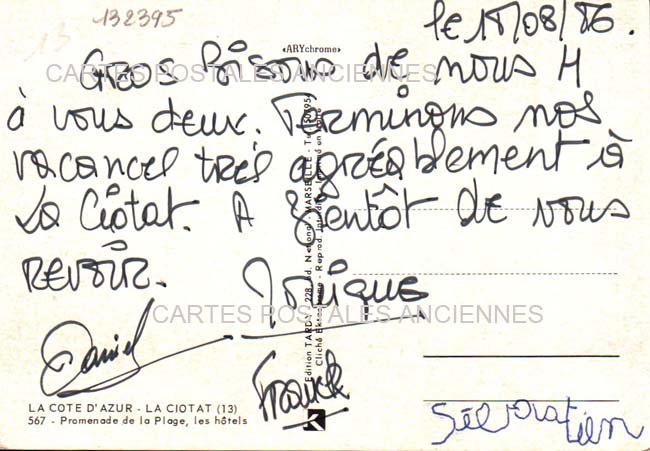 132395
le 18/08/86.
«ARYchrome»
Gros Bisous de nous 4
CARTES POSTALES ANCIENNES
à vous deux. Terminons nos
vacances très agréablement à
La Ciotat. A Bientôt de vous
revoir.
CARTES POSTALES ANCIENNES
Daniel
Franck
LA COTE D'AZUR - LA CIOTAT (13)
567 - Promenade de la Plage, les hôtels
Edition TARDY - 228, Bd. National - MARSEILLE - Tél. 50
Cliché Ektachrome - Reprod. Interdite
K